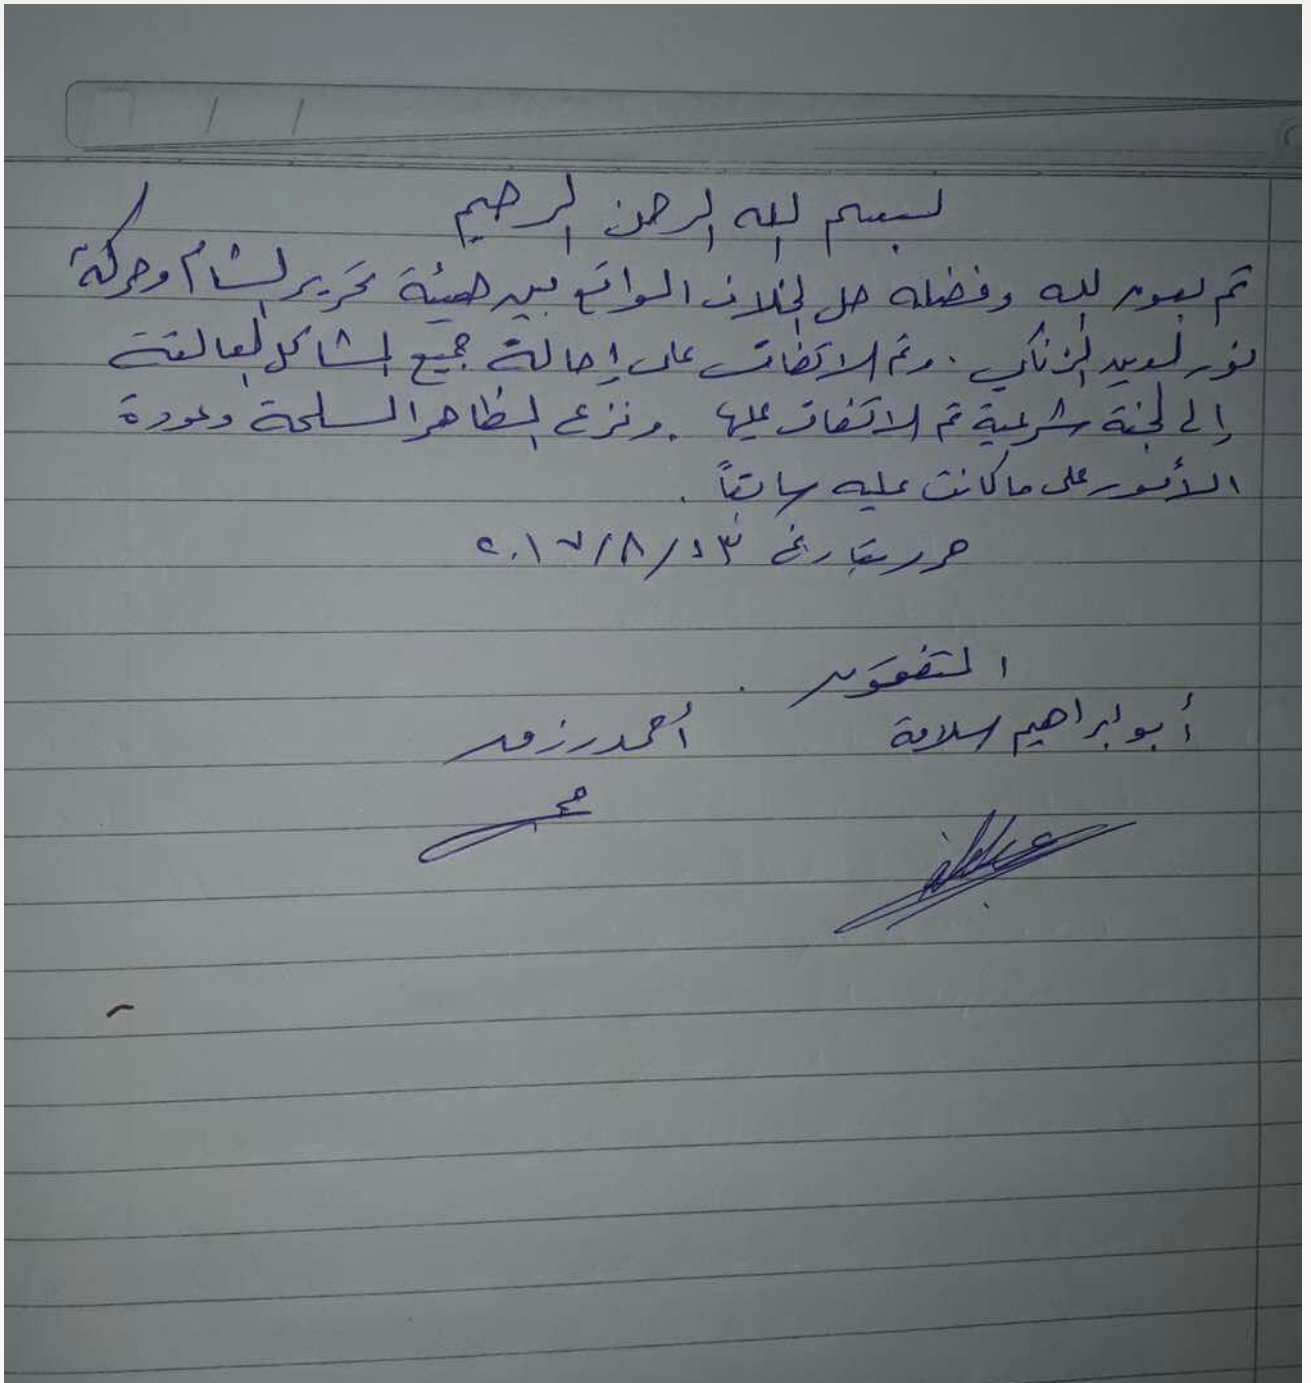 بسم الله الرحمن الرحيم
تم بعون الله وفضله حل الخلاف الواقع بين هيئة تحرير الشام وحركة
نور الدين الزنكي . وتم الاتفاق على إحالة جميع المشاكل العالقة
إلى لجنة شرعية تم الاتفاق عليها . ونزع المظاهر المسلحة وعودة
الأمور على ما كانت عليه سابقاً .
حرر بتاريخ ٢٠١٧/٨/
المتفقون .
أبو إبراهيم سلامة أحمد رزق